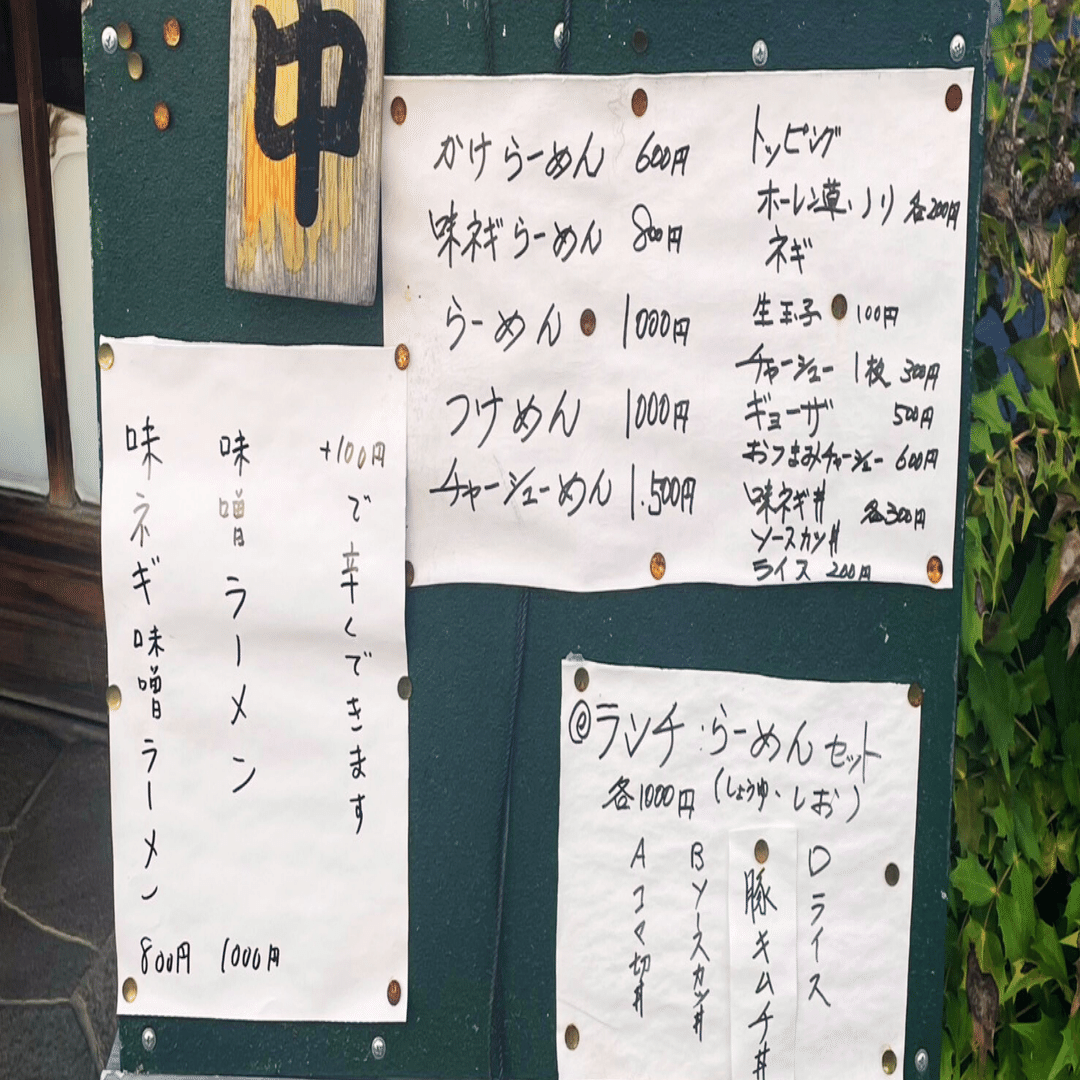 中
かけらーめん 600円
味ネギらーめん 800円
らーめん 1000円
つけめん 1000円
チャーシューめん 1.500円
トッピング
ホーレン草、ノリ 各200円
ネギ
生玉子 100円
チャーシュー 1枚 300円
ギョーザ 500円
おつまみチャーシュー 600円
味ネギ丼 各300円
ソースカツ丼
ライス 200円
+100円で辛くできます
味噌ラーメン 1000円
味ネギ味噌ラーメン 800円
@ランチ:らーめんセット
各1000円 (しょうゆ、しお)
Aコマ切丼
Bソースカツ丼
豚キムチ丼
Dライス